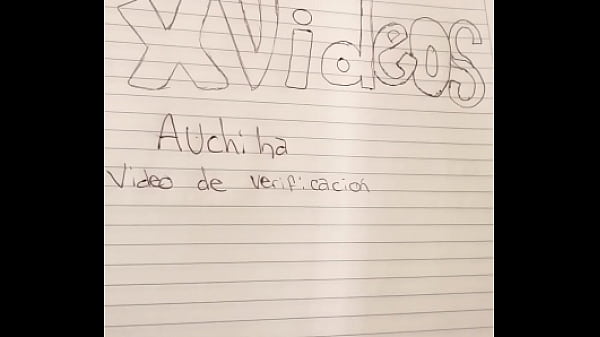 XVideos
AUchiha
Video de verificacion